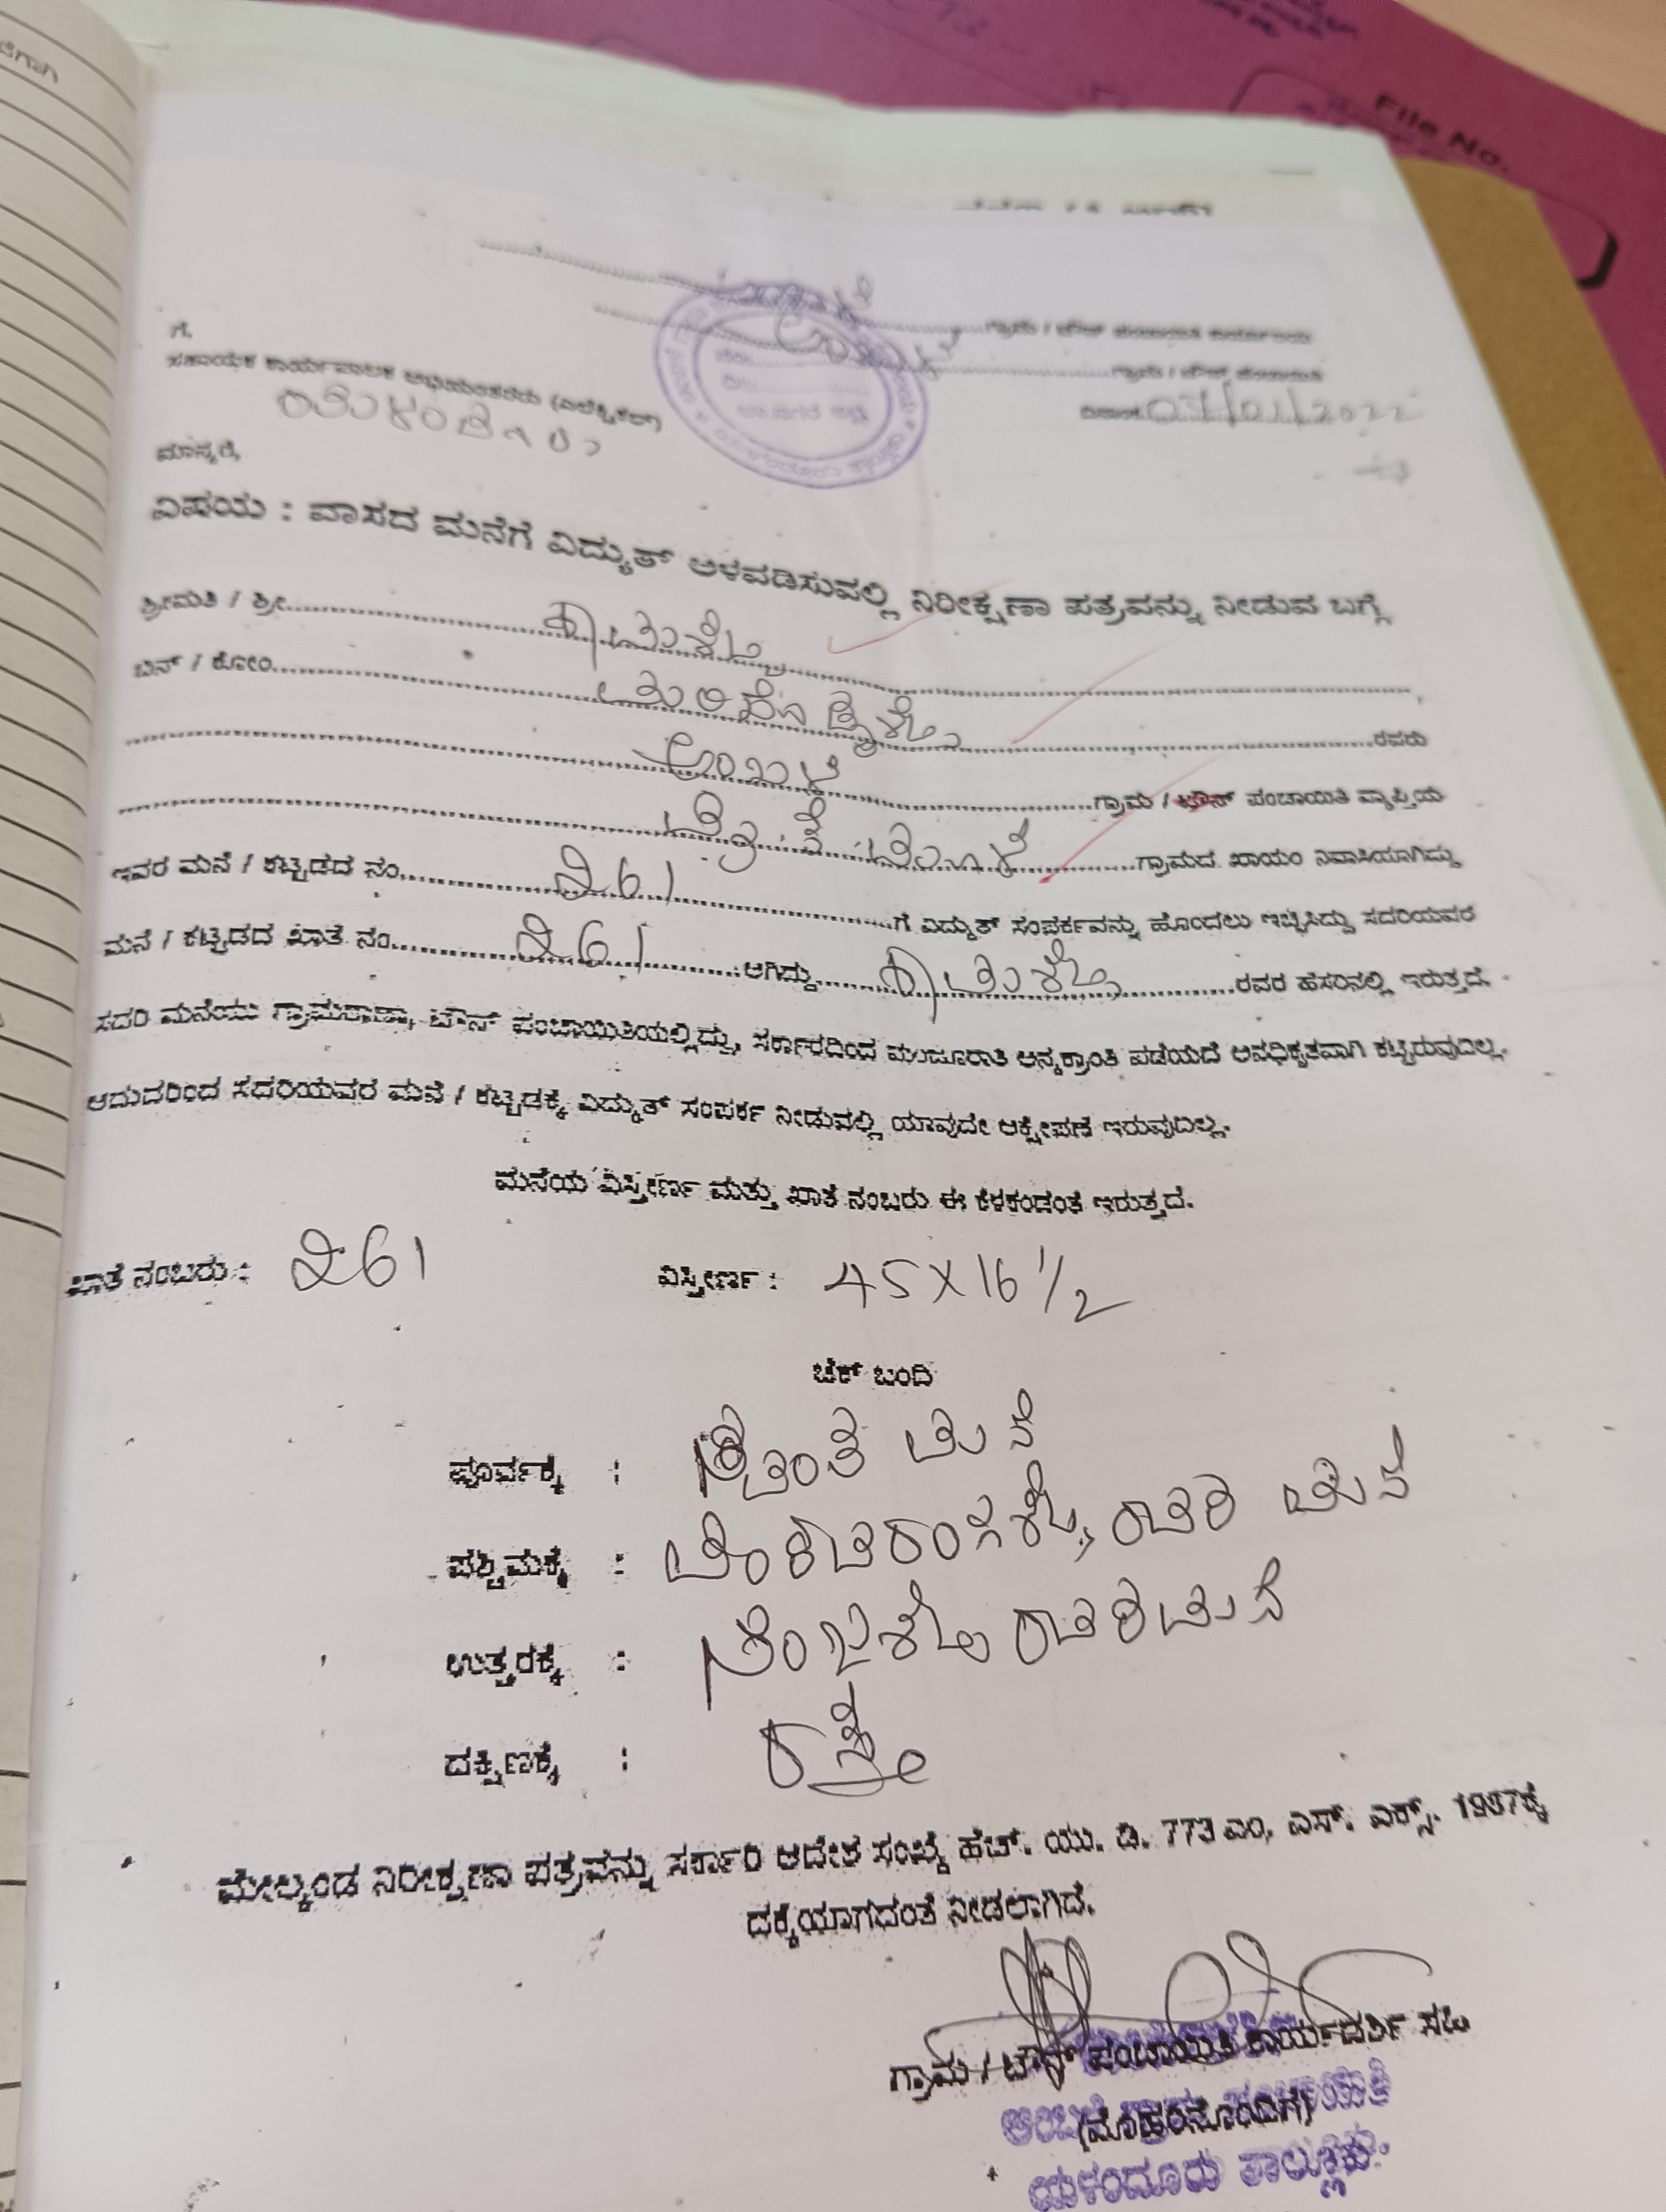 File No.
ಗ್ರಾಮ / ಟೌನ್ ಪಂಚಾಯಿತಿ ಕಾರ್ಯಾಲಯ
ಅಂಬಳೆ ಗ್ರಾಮ / ಟೌನ್ ಪಂಚಾಯಿತಿ
ಗೆ,
ಸಹಾಯಕ ಕಾರ್ಯಪಾಲಕ ಅಭಿಯಂತರರು (ಎಲೆಕ್ಟ್ರಿಕಲ್)
ದಿನಾಂಕ 07/01/2022
ಯಳಂದೂರು
ಮಾನ್ಯರೆ,
ವಿಷಯ : ವಾಸದ ಮನೆಗೆ ವಿದ್ಯುತ್ ಅಳವಡಿಸುವಲ್ಲಿ ನಿರೀಕ್ಷಣಾ ಪತ್ರವನ್ನು ನೀಡುವ ಬಗ್ಗೆ
ಶ್ರೀಮತಿ / ಶ್ರೀ
ಬಿನ್ / ಕೋಂ ರವರು
ಅಂಬಳೆ ಗ್ರಾಮ / ಟೌನ್ ಪಂಚಾಯಿತಿ ವ್ಯಾಪ್ತಿಯ
ಗ್ರಾಮದ ಖಾಯಂ ನಿವಾಸಿಯಾಗಿದ್ದು
ಇವರ ಮನೆ / ಕಟ್ಟಡದ ನಂ. 261 ಗೆ ವಿದ್ಯುತ್ ಸಂಪರ್ಕವನ್ನು ಹೊಂದಲು ಇಚ್ಛಿಸಿದ್ದು ಸದರಿಯವರ
ಮನೆ / ಕಟ್ಟಡದ ಖಾತೆ ನಂ. 261 ಆಗಿದ್ದು ರವರ ಹೆಸರಿನಲ್ಲಿ ಇರುತ್ತದೆ.
ಸದರಿ ಮನೆಯು ಗ್ರಾಮಠಾಣಾ, ಟೌನ್ ಪಂಚಾಯಿತಿಯಲ್ಲಿದ್ದು, ಸರ್ಕಾರದಿಂದ ಮಂಜೂರಾತಿ ಅನ್ಯಕ್ರಾಂತಿ ಪಡೆಯದೆ ಅನಧಿಕೃತವಾಗಿ ಕಟ್ಟಿರುವುದಿಲ್ಲ.
ಆದುದರಿಂದ ಸದರಿಯವರ ಮನೆ / ಕಟ್ಟಡಕ್ಕೆ ವಿದ್ಯುತ್ ಸಂಪರ್ಕ ನೀಡುವಲ್ಲಿ ಯಾವುದೇ ಆಕ್ಷೇಪಣೆ ಇರುವುದಿಲ್ಲ.
ಮನೆಯ ವಿಸ್ತೀರ್ಣ ಮತ್ತು ಖಾತೆ ನಂಬರು ಈ ಕೆಳಕಂಡಂತೆ ಇರುತ್ತದೆ.
ಖಾತೆ ನಂಬರು : 261 ವಿಸ್ತೀರ್ಣ : 45 X 16 1/2
ಚೆಕ್ ಬಂದಿ
ಪೂರ್ವಕ್ಕೆ : ಮನೆ
ಪಶ್ಚಿಮಕ್ಕೆ : ವೆಂಕಟರಂಗಶೆಟ್ಟಿ ರವರ ಮನೆ
ಉತ್ತರಕ್ಕೆ : ನಂಜಶೆಟ್ಟಿ ರವರ ಮನೆ
ದಕ್ಷಿಣಕ್ಕೆ : ರಸ್ತೆ
ಮೇಲ್ಕಂಡ ನಿರೀಕ್ಷಣಾ ಪತ್ರವನ್ನು ಸರ್ಕಾರಿ ಆದೇಶ ಸಂಖ್ಯೆ ಹೆಚ್. ಯು. ಡಿ. 773 ಎಂ. ಎಸ್. ಎಕ್ಸ್. 1987ಕ್ಕೆ
ದಕ್ಕೆಯಾಗದಂತೆ ನೀಡಲಾಗಿದೆ.
ಗ್ರಾಮ / ಟೌನ್ ಪಂಚಾಯಿತಿ ಕಾರ್ಯದರ್ಶಿ ಸಹಿ
(ಮೊಹರಿನೊಂದಿಗೆ)
ಅಂಬಳೆ ಗ್ರಾಮ ಪಂಚಾಯಿತಿ
ಯಳಂದೂರು ತಾಲ್ಲೂಕು.